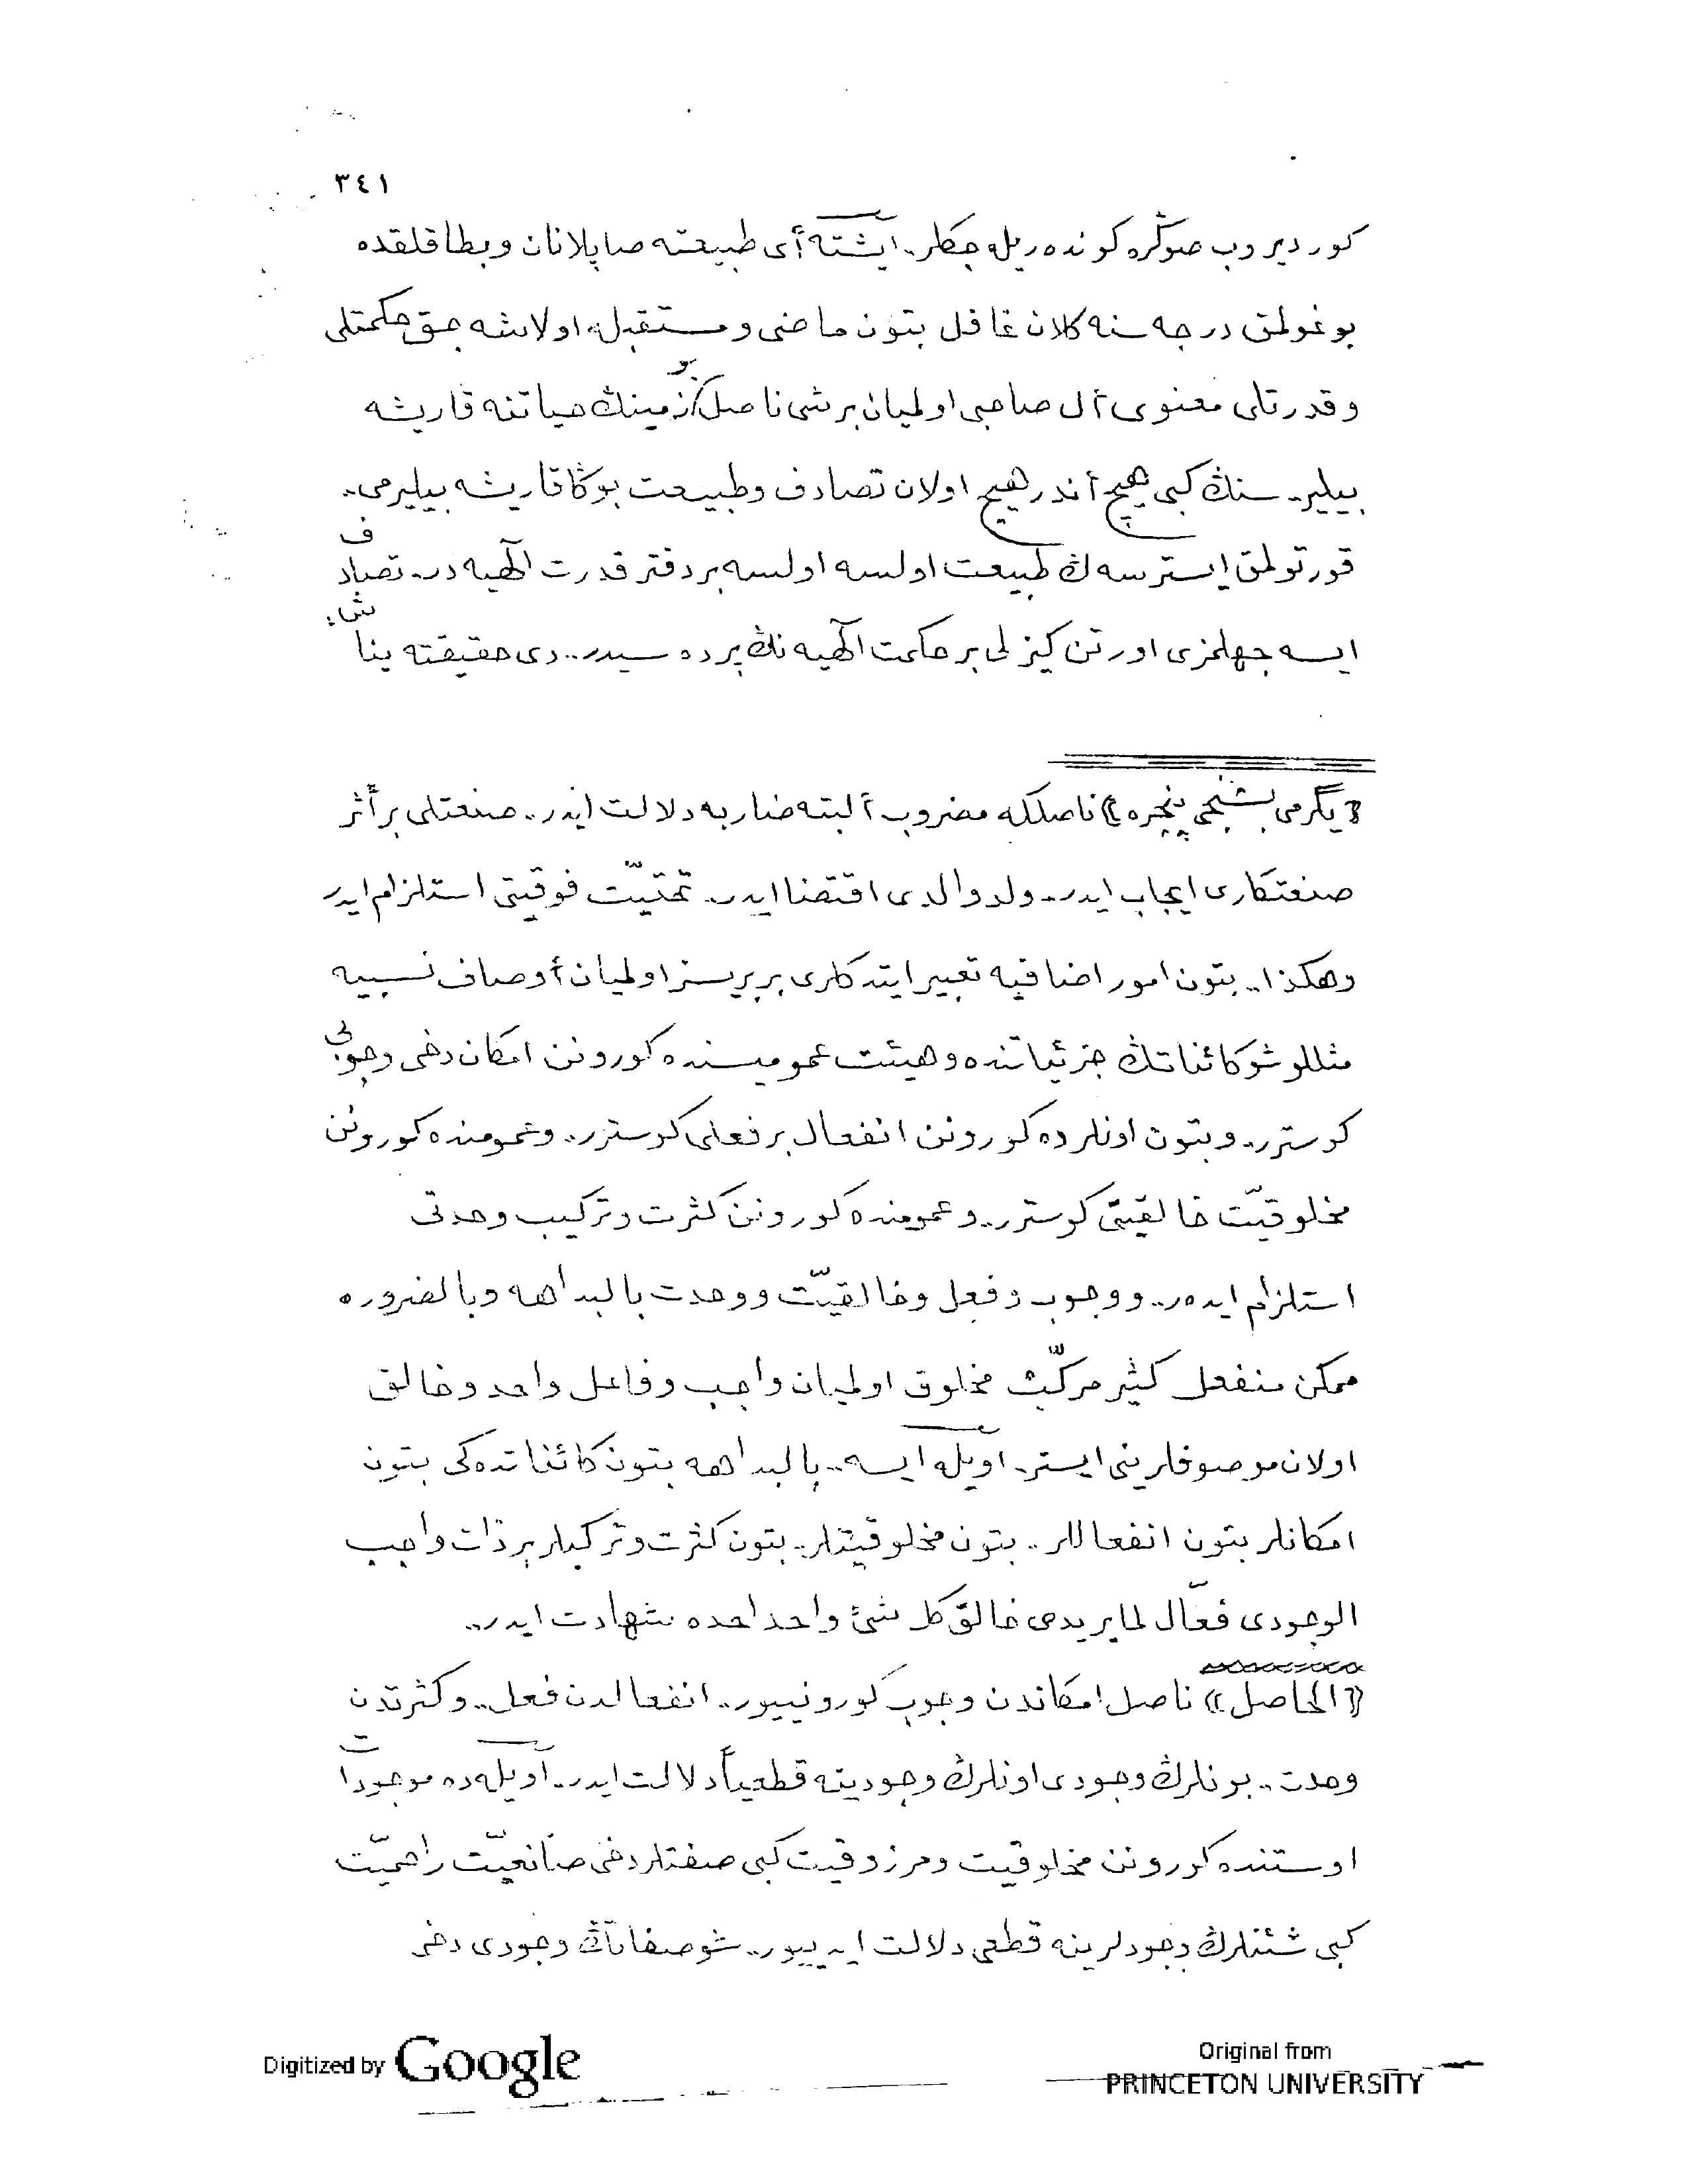 ٣٤١
كورديروب صوڭره كونده‌ريله جكلر.. ايشته أى طبيعته صاپلانان وبطاقلقده
بوغولمق درجه سنه كلان غافل بتون ماضى ومستقبله اولاشه جق حكمتلى
وقدرتلى معنوى أل صاحبى اولميان برشى ناصل بو زمينڭ حياتنه قاريشه
بيلير.. سنڭ كبى هيچ أندر هيچ اولان تصادف وطبيعت بوڭا قاريشه بيليرمى..
قورتولمق ايسترسه ڭ طبيعت اولسه اولسه بر دفتر قدرت الٓهيه در.. تصادف
ايسه جهلمزى اورتن كيزلى بر حكمت الٓهيه نڭ پرده سيدر.. دى حقيقته ينا ش.
﴿يگرمى بشنجى پنجره﴾ ناصلكه مضروب ألبته ضاربه دلالت ايدر.. صنعتلى بر أثر
صنعتكارى ايجاب ايدر.. ولد والدى اقتضا ايدر.. تحتيّت فوقيتى استلزام ايدر
وهكذا.. بتون امور اضافيه تعبير ايتدكلرى بربريسز اولميان أوصاف نسبيه
مثللو شو كائناتڭ جزئياتنده وهيئت عموميسنده كورونن امكان دخى وجوبى
كوسترر.. وبتون اونلرده كورونن انفعال بر فعلى كوسترر.. وعمومنده كورونن
مخلوقيّت خالقيّتى كوسترر.. وعمومنده كورونن كثرت وتركيب وحدتى
استلزام ايده‌ر.. ووجوب وفعل وخالقيّت ووحدت بالبداهه وبالضروره
ممكن منفعل كثير مركّب مخلوق اولميان واجب وفاعل واحد وخالق
اولان موصوفلرينى ايستر.. اويله ايسه.. بالبداهه بتون كائناتده كى بتون
امكانلر بتون انفعاللر.. بتون مخلوقيتلر.. بتون كثرت وتركيبلر بر ذات واجب
الوجودى فعّال لما يريدى خالق كل شئ واحد احده شهادت ايدر..
﴿الحاصل﴾ ناصل امكاندن وجوب كورونييور.. انفعالدن فعل.. وكثرتدن
وحدت.. بونلرڭ وجودى اونلرڭ وجودينه قطعياً دلالت ايدر.. أويله ده موجودات
اوستنده كورونن مخلوقيت ومرزوقيت كبى صفتلر دخى صانعيّت راحميّت
كبى شئنلرڭ وجودلرينه قطعى دلالت ايدييور.. شو صفاتڭ وجودى دخى
Digitized by Google
Original from
PRINCETON UNIVERSITY